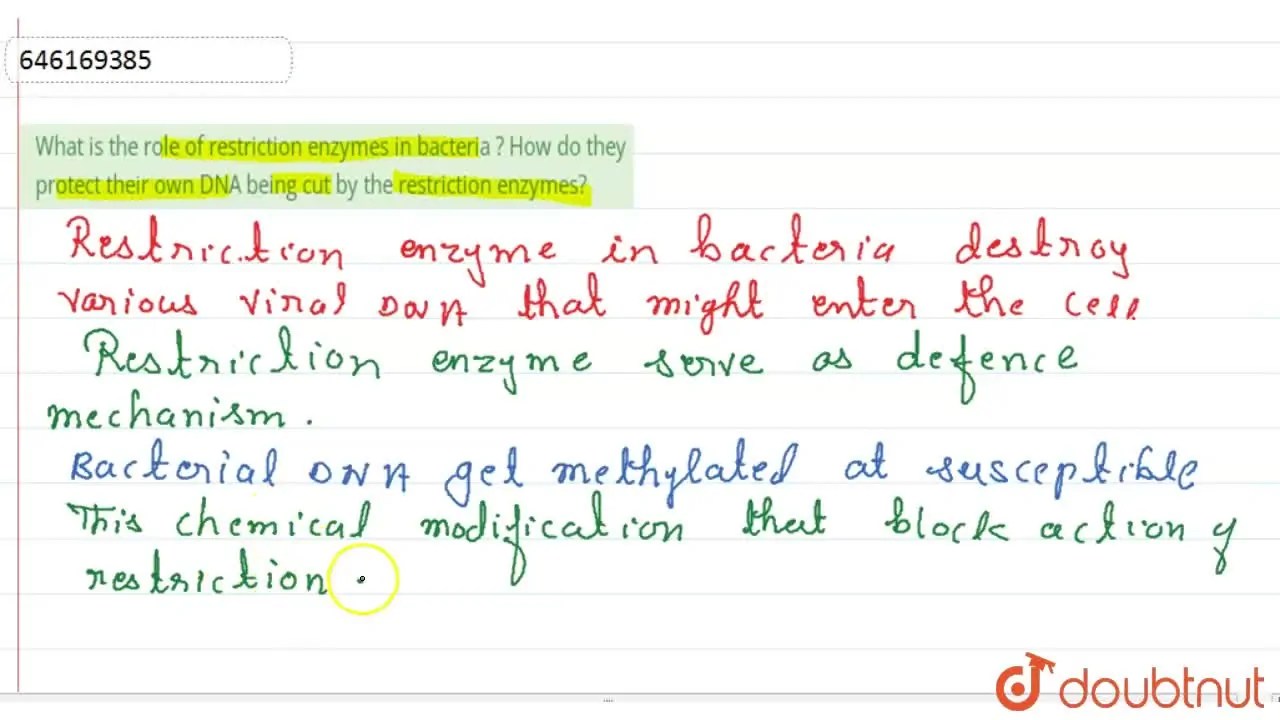 646169385
What is the role of restriction enzymes in bacteria ? How do they
protect their own DNA being cut by the restriction enzymes?
Restriction enzyme in bacteria destroy
various viral DNA that might enter the cell
Restriction enzyme serve as defence
mechanism.
Bacterial DNA get methylated at susceptible
This chemical modification that block action of
restriction
doubtnut